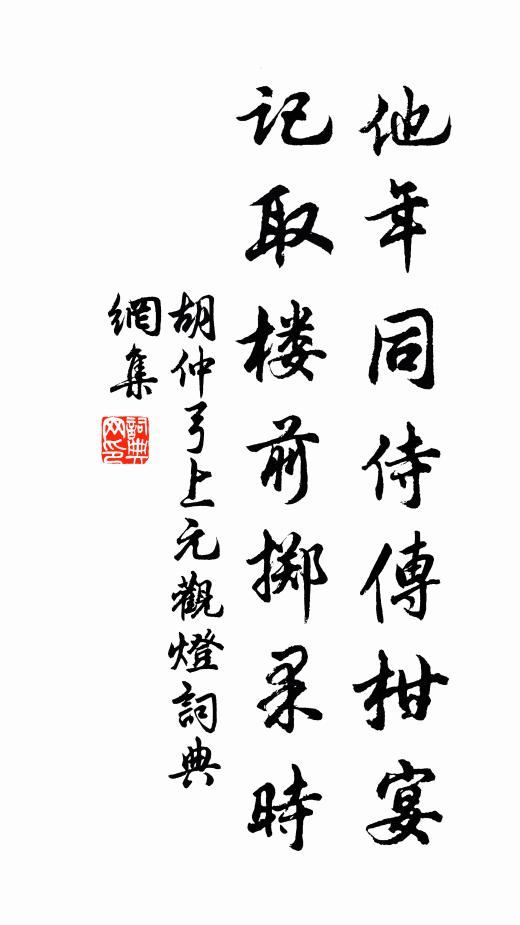 他年同侍傳柑宴
记取楼前掷果時
胡仲弓上元觀燈詞典
網集
詞典网印